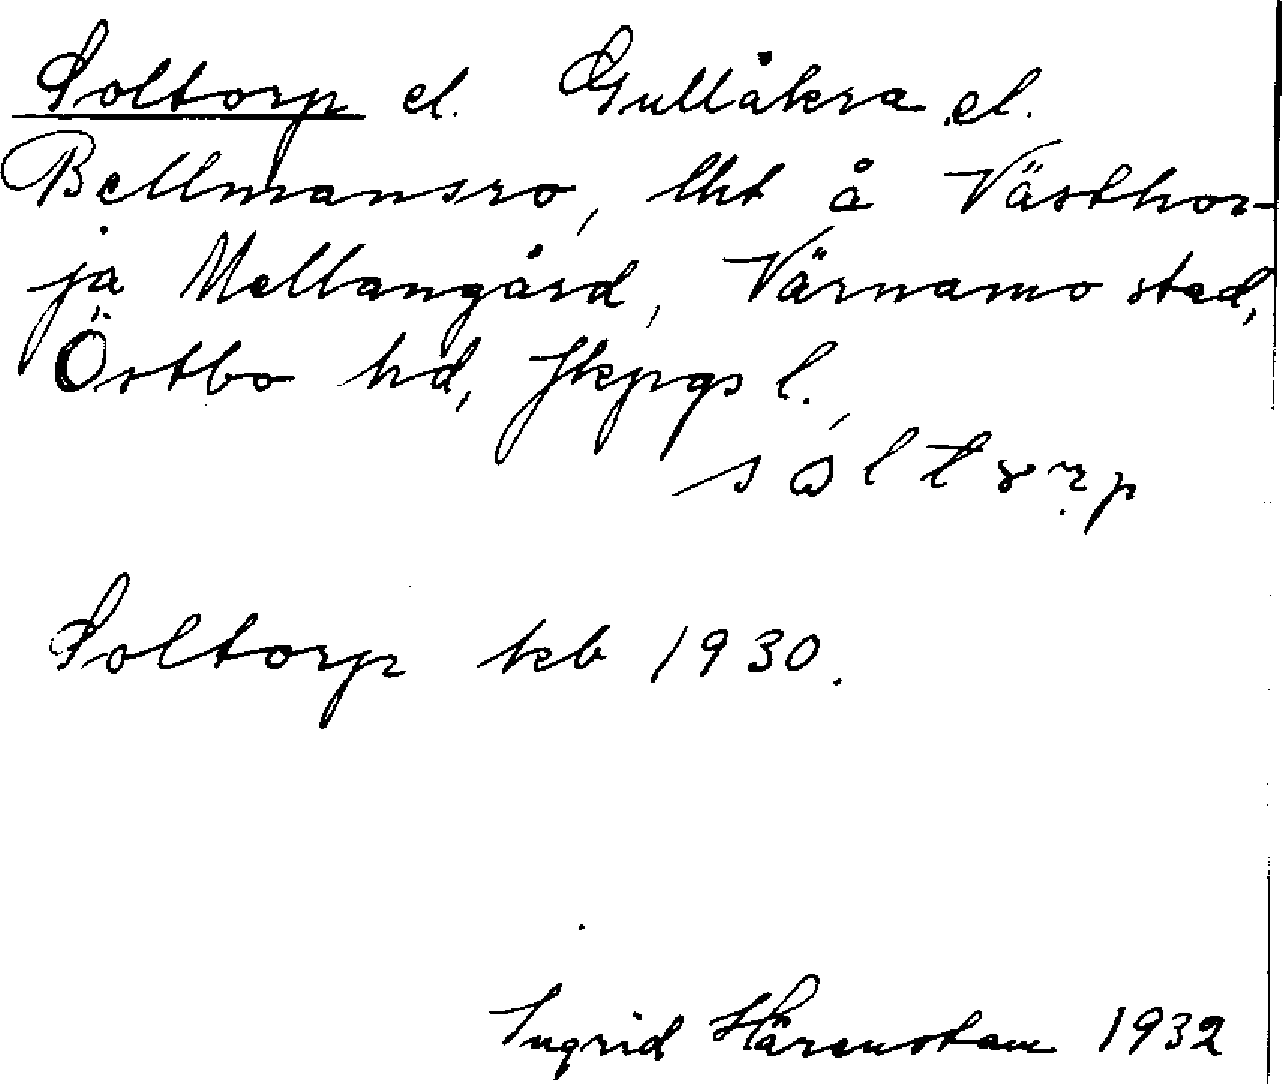 Soltorp el. Gullåkra el.
Bellmansro, lht å Västhor-
ja Mellangård, Värnamo stad,
Östbo hd, Jkpgs l.
Soltorp kb 1930.
Ingrid Härenstam 1932